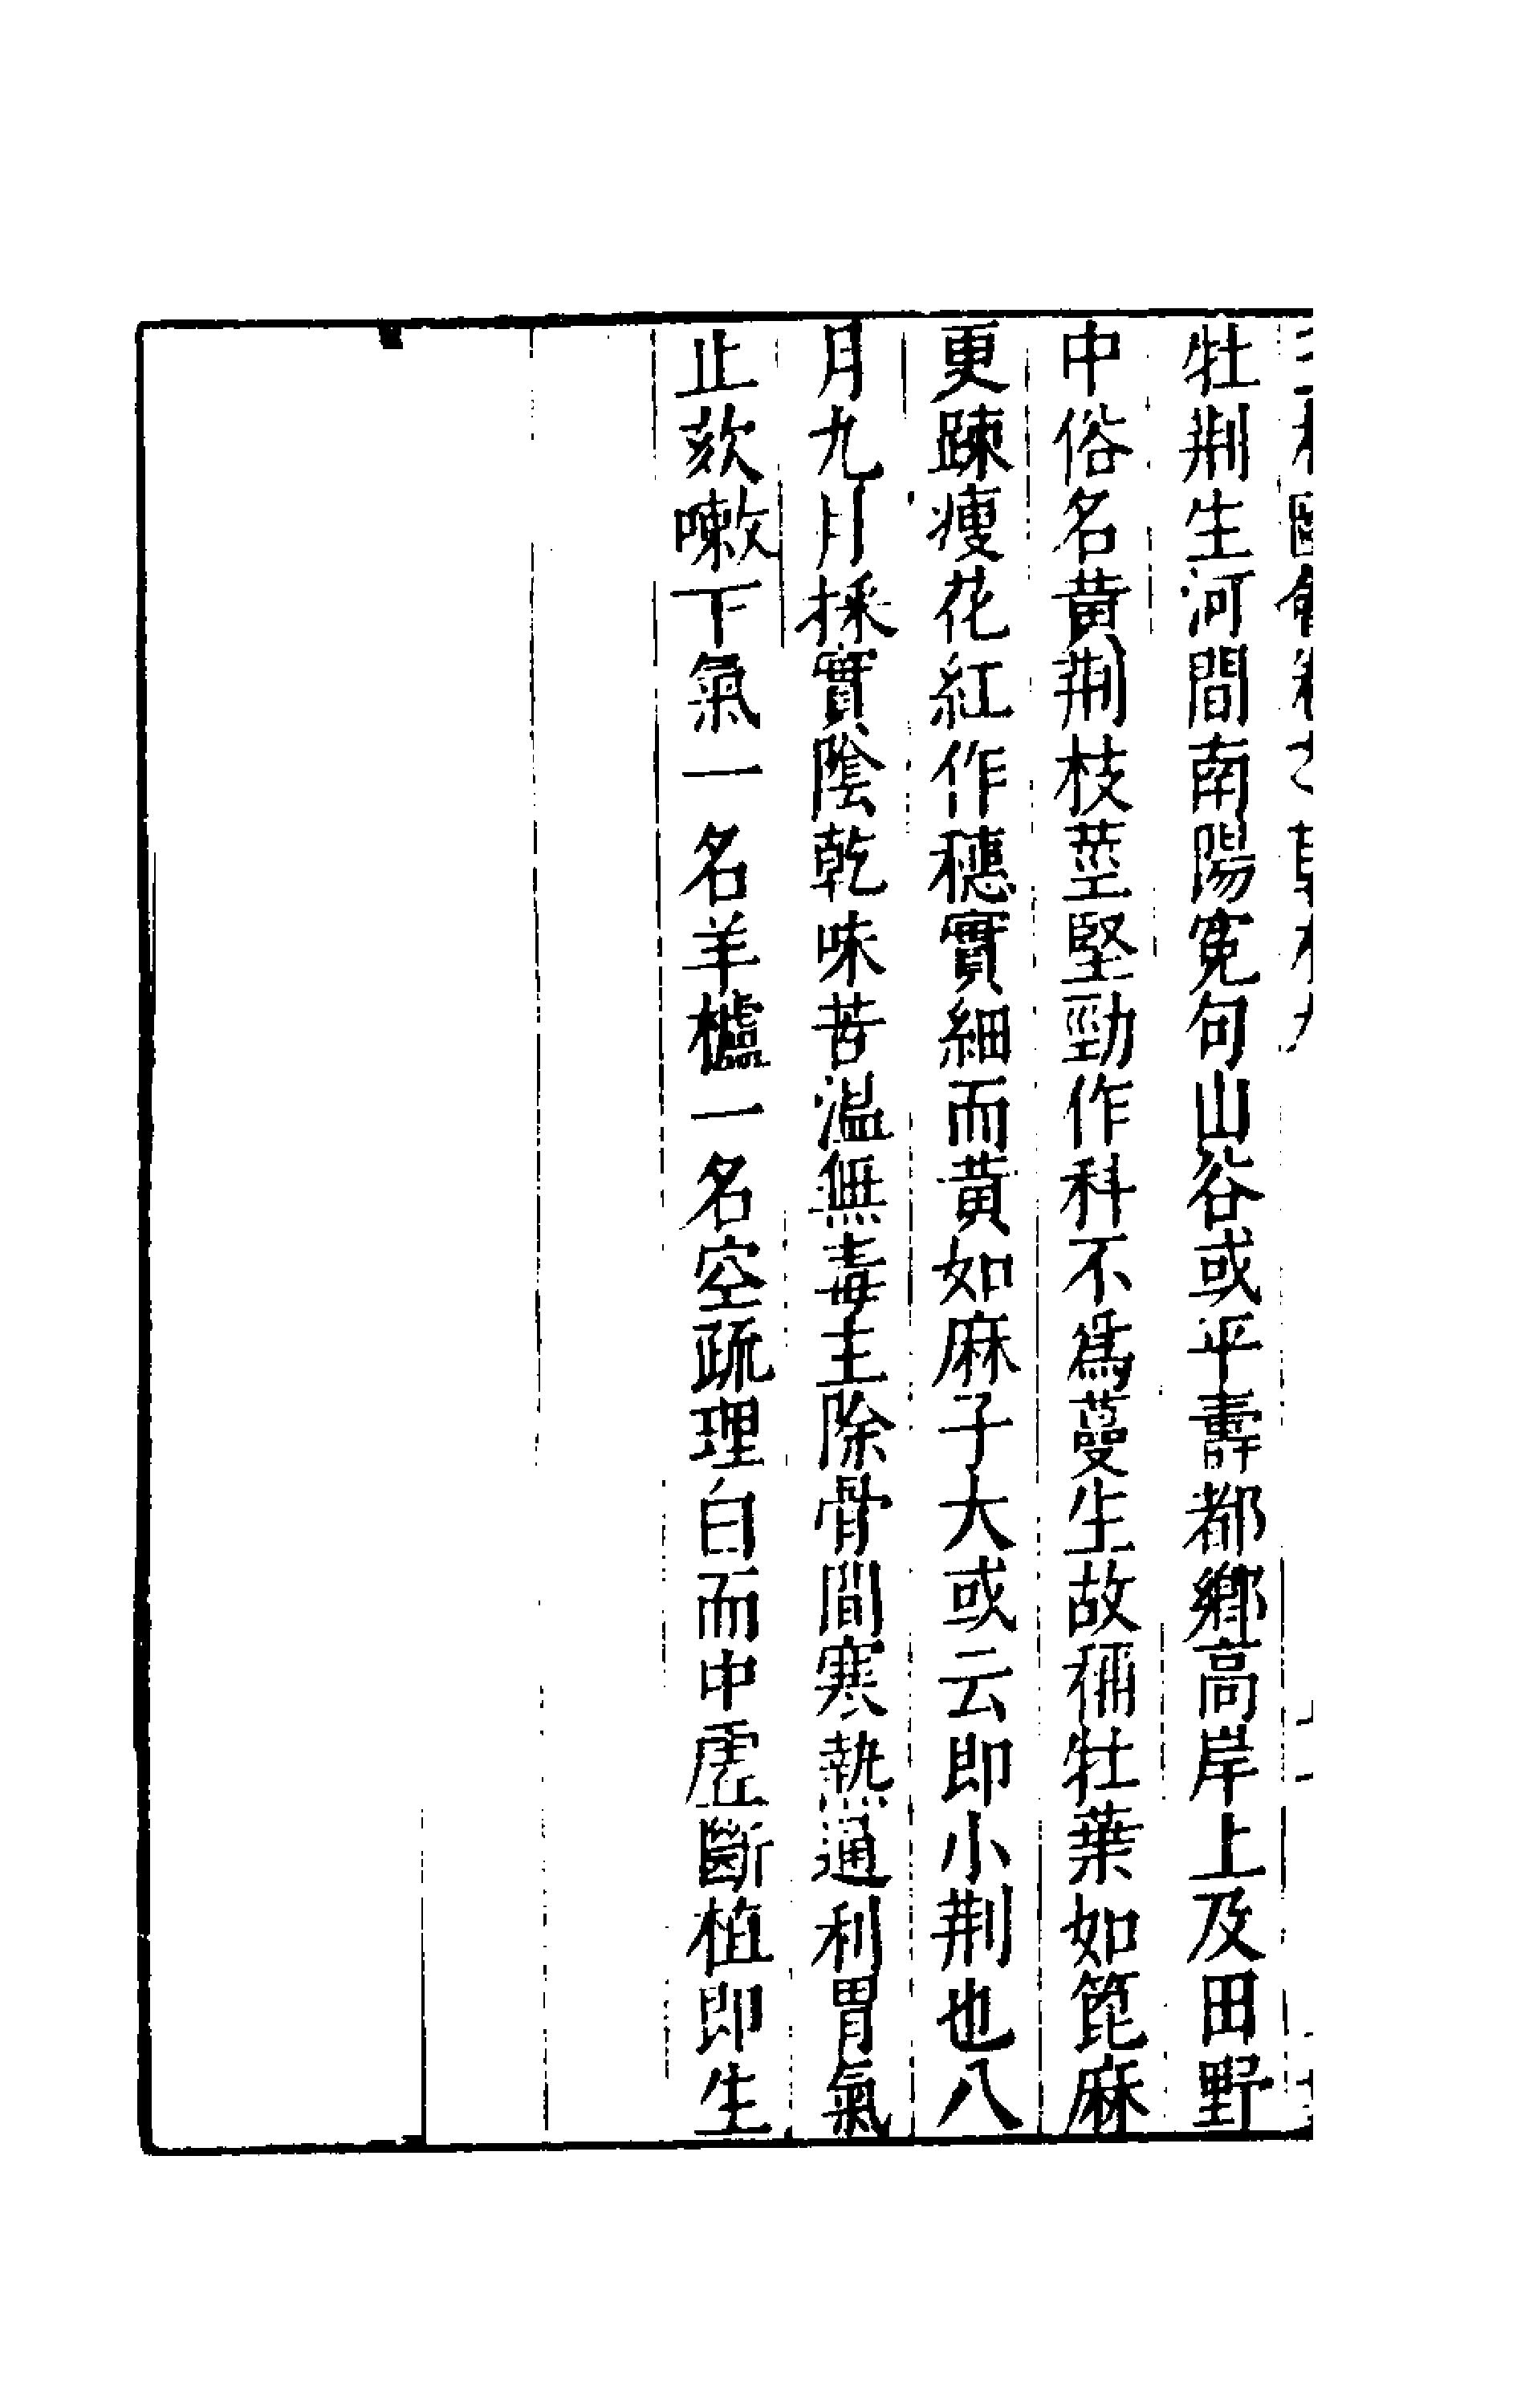 牡荆生河間南陽寃句山谷或平壽都鄉高岸上及田野
中俗名黄荆枝莖堅勁作科不爲蔓生故稱牡葉如箆麻
更踈瘦花紅作穗實細而黃如麻子大或云即小荆也八
月九月採實陰乾味苦溫無毒主除骨間寒熱通利胃氣
止欬嗽下氣一名羊櫨一名空疏理白而中虛斷植即生